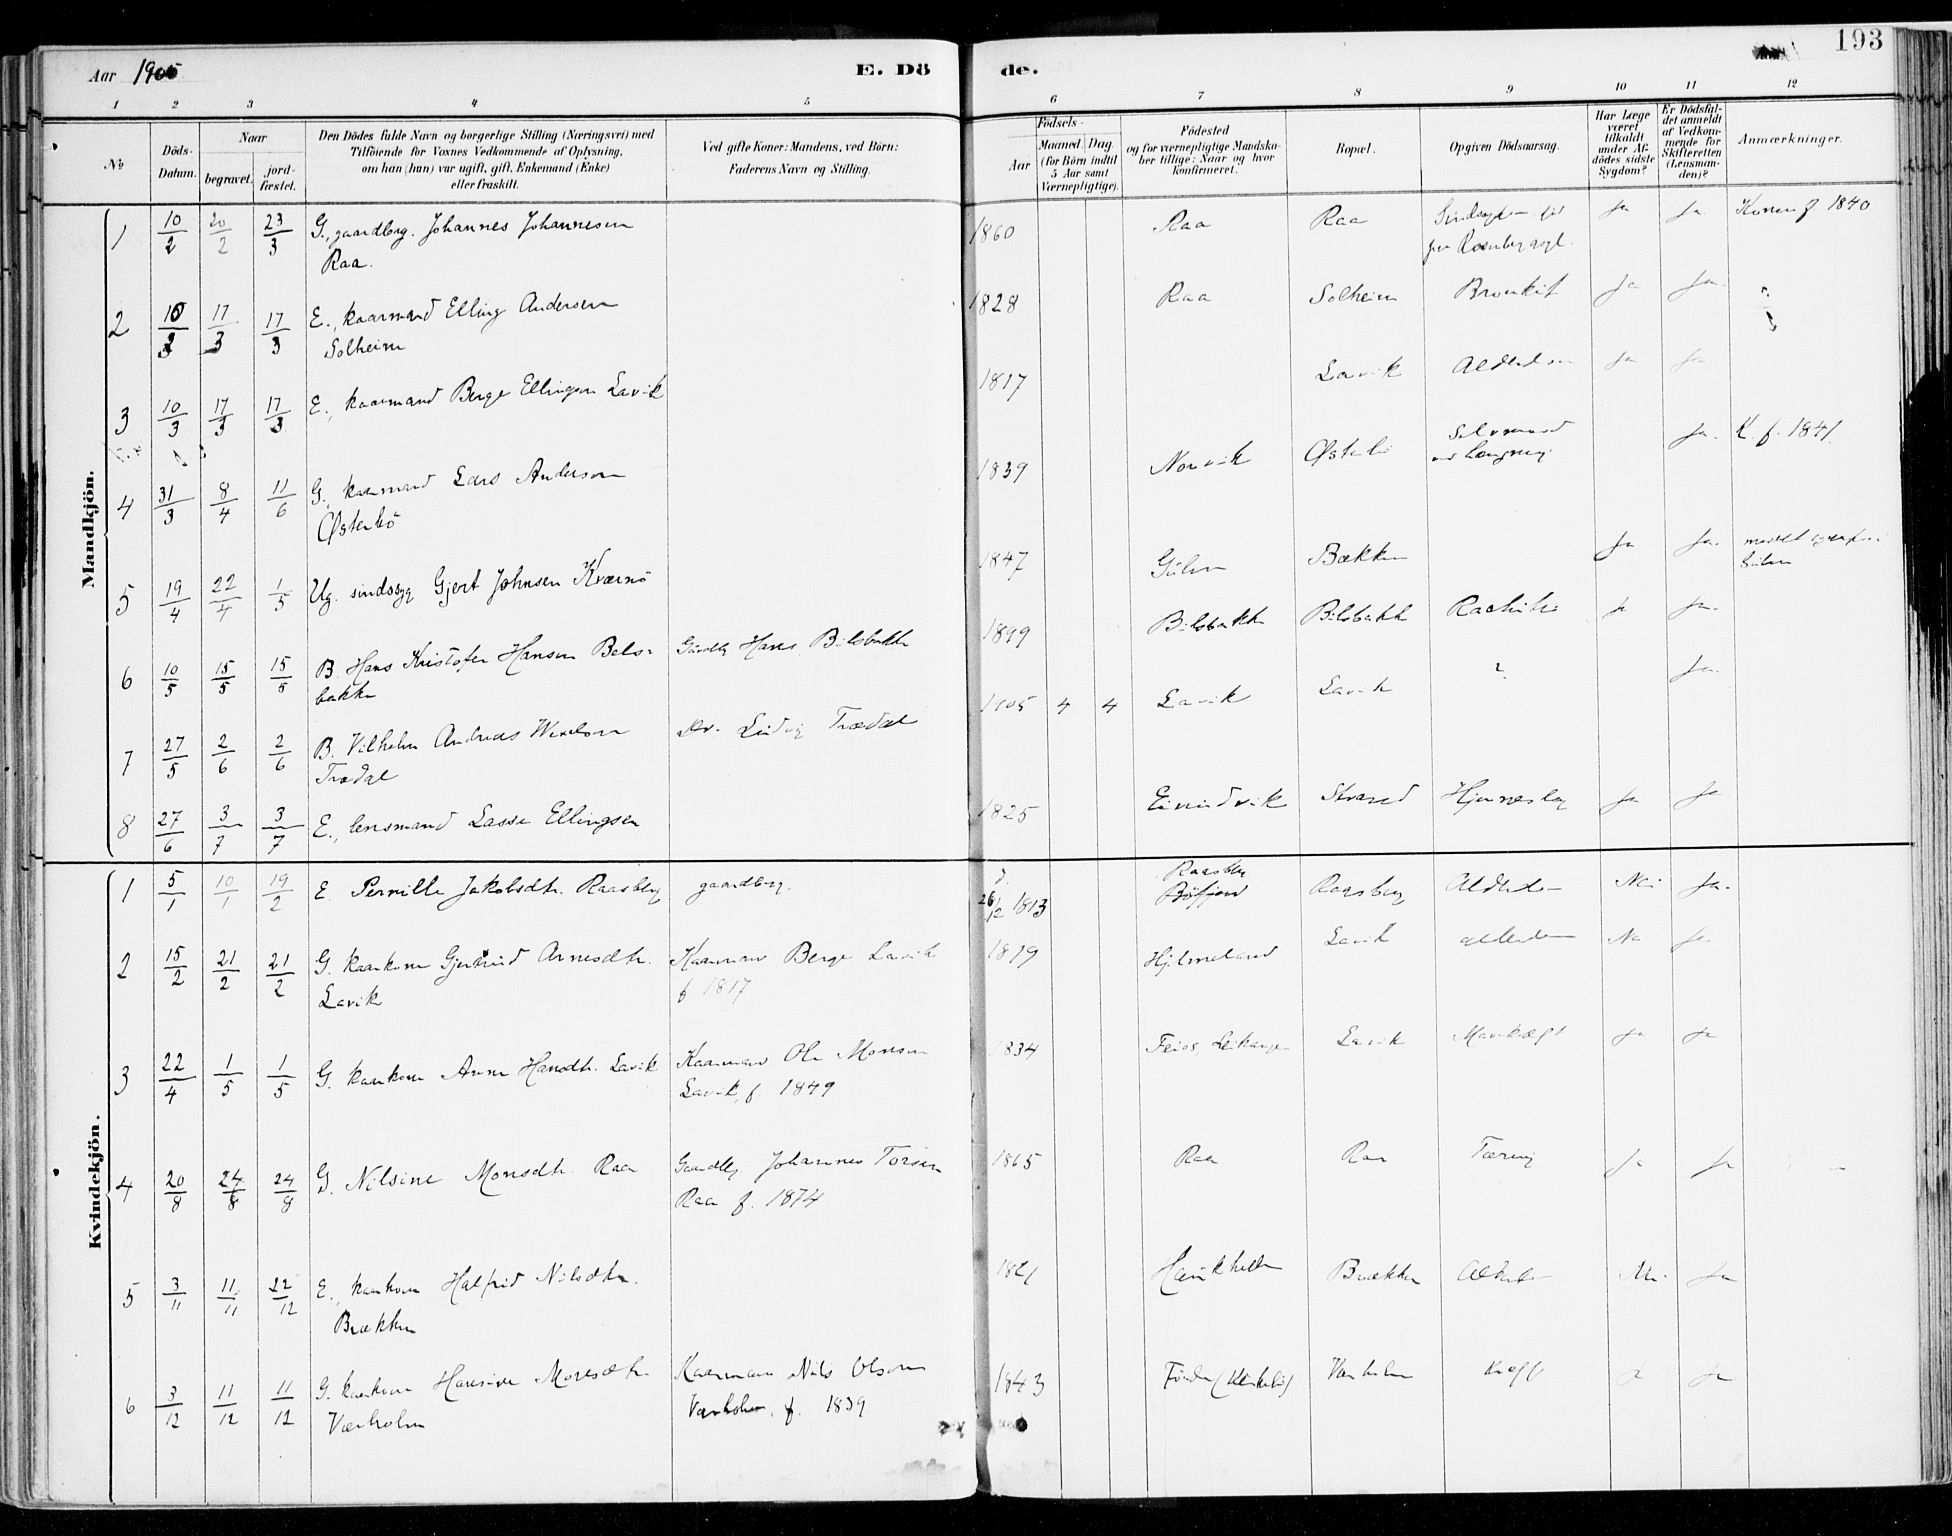 193
Aar 1905
E. Dö de.
1 2 3 4 5 6 7 8 9 10 11 12
No
Döds-Datum.
Naar
begravet.
jordfæstet.
Den Dödes fulde Navn og borgerlige Stilling (Næringsvei) med
Tilföiende for Voxnes Vedkommende af Oplysning,
om han (hun) var ugift, gift, Enkemand (Enke)
eller fraskilt.
Ved gifte Koner: Mandens, ved Börn:
Faderens Navn og Stilling.
Födsels-
Aar
Maaned. Dag.
(for Börn indtil
5 Aar samt
Værnepligtige).
Födested
og for værnepligtige Mandskaber tillige: Naar og hvor
konfirmeret.
Bopæl.
Opgiven Dödsaarsag.
Har Læge
været
tilkaldt
under Afdödes sidste
Sygdom?
Er Dödsfaldet anmeldt
af Vedkommende for
Skifteretten
(Lensmanden)?
Anmærkninger.
Mandkjön.
1 10/2 20/2 23/3 G., gaardbrg. Johannes Johannesen 1860 Raa Raa Ja Ja Konen f 1840
Raa.
2 10/3 17/3 17/3 E., kaarmand Elling Andersen 1828 Raa Solheim Bronkit Ja Ja.
Solheim
3 10/3 17/3 17/3 E., kaarmand Berge Ellingsen Lavik 1817 Lavik Alderdom Ja Ja
4 31/3 8/4 11/6 G., kaarmand Lars Andersen 1839 Norvik Østerbö Selvmord Ja. K. f. 1841
Østerbö
5 19/4 22/4 1/5 Ug. sindssyg Gjert Johnsen Kværnö 1847 Gulen Brekken Ja Ja.
6 10/5 15/5 15/5 B. Hans Kristofer Hansen Belsbakke Gaardbg Hans Bilsbakke 1899 Bilsbakk Bilsbakk Rachitis Ja Ja.
7 27/5 2/6 2/6 B. Vilhelm Andreas Trædal Ludvig Trædal 1905 4 4 Lavik Lavik ? Ja.
8 27/6 3/7 3/7 E., lensmand Lasse Ellingsen 1825 Eivindvik Strand Ja Ja
Kvindekjön.
1 5/1 10/1 19/2 E. Pernille Jakobsdtr. Raasberg gaardbrg. d. 26/12 1813 Raasberg Alderdom Nei Ja.
2 15/2 21/2 21/2 G. kaarkone Gjertrud Arnesdtr. Kaarmand Berge Lavik 1819 Hjelmeland Lavik alderdom Nei Ja.
Lavik f 1817
3 22/4 1/5 1/5 G. kaarkone Anne Hansdtr. Lavik Kaarmand Ole Monsen 1834 Feios, Leikanger Lavik Mavekræft Ja Ja
Lavik, f. 1849
4 20/8 24/8 24/8 G. Nilsine Monsdtr. Raa Gaardbg Johannes Torsen 1865 Raa Raa Tæring Ja Ja
Raa f. 1874
5 3/11 11/11 22/12 E., kaarkone Halfrid Nilsdtr. 1821 Brækken Alderdom Nei. Ja
Brækken
6 3/12 11/12 11/12 G. kaarkone Hansine Monsdtr. Kaarmand Nils Olsen 1843 Værholm Kræft Ja Ja
Værholm Værholm, f. 1839